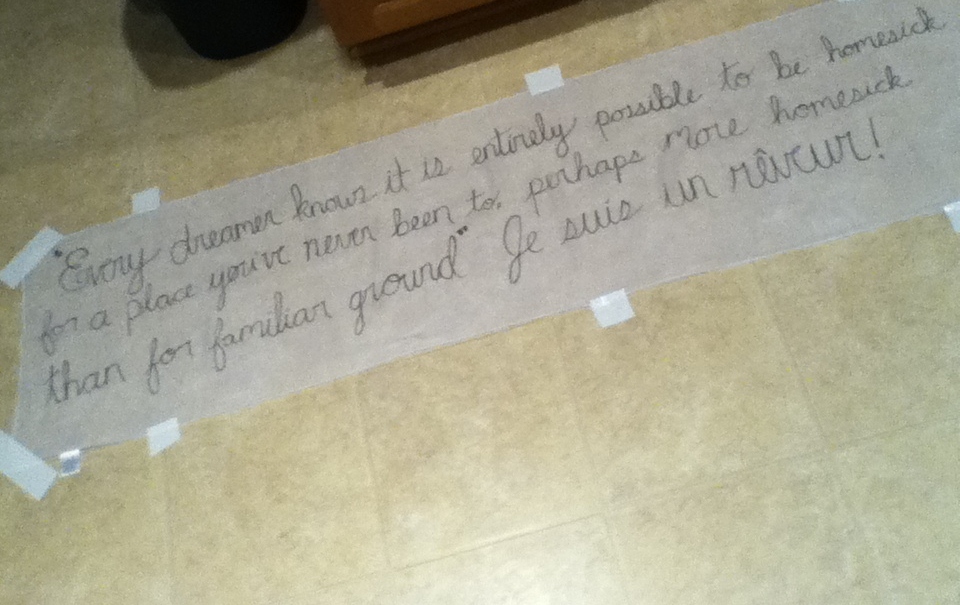 "Every dreamer knows it is entirely possible to be homesick
for a place you've never been to, perhaps more homesick
than for familiar ground" Je suis un rêveur!